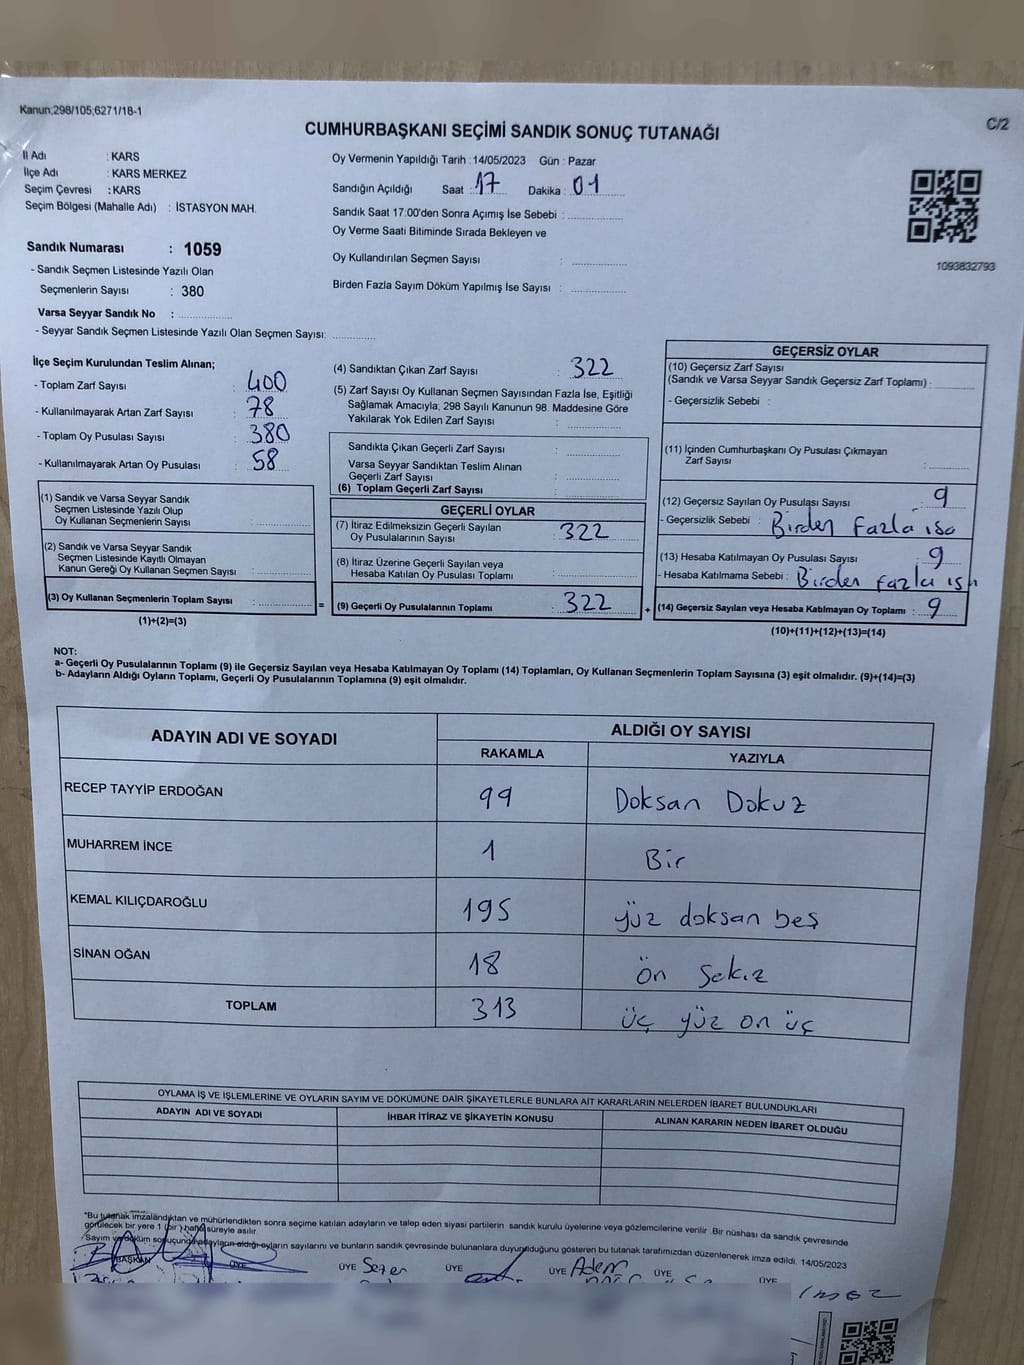 Kanun,298/105;6271/18-1
C/2
CUMHURBAŞKANI SEÇİMİ SANDIK SONUÇ TUTANAĞI
İl Adı : KARS
İlçe Adı : KARS MERKEZ
Seçim Çevresi : KARS
Seçim Bölgesi (Mahalle Adı) : İSTASYON MAH.
Oy Vermenin Yapıldığı Tarih : 14/05/2023 Gün : Pazar
Sandığın Açıldığı Saat : 17 Dakika : 01
Sandık Saat 17:00'den Sonra Açımış İse Sebebi :
Oy Verme Saati Bitiminde Sırada Bekleyen ve
Oy Kullandırılan Seçmen Sayısı :
Birden Fazla Sayım Döküm Yapılmış İse Sayısı :
1093832793
Sandık Numarası : 1059
- Sandık Seçmen Listesinde Yazılı Olan
Seçmenlerin Sayısı : 380
Varsa Seyyar Sandık No :
- Seyyar Sandık Seçmen Listesinde Yazılı Olan Seçmen Sayısı:
İlçe Seçim Kurulundan Teslim Alınan;
- Toplam Zarf Sayısı : 400
- Kullanılmayarak Artan Zarf Sayısı : 78
- Toplam Oy Pusulası Sayısı : 380
- Kullanılmayarak Artan Oy Pusulası : 58
(1) Sandık ve Varsa Seyyar Sandık
Seçmen Listesinde Yazılı Olup
Oy Kullanan Seçmenlerin Sayısı :
(2) Sandık ve Varsa Seyyar Sandık
Seçmen Listesinde Kayıtlı Olmayan
Kanun Gereği Oy Kullanan Seçmen Sayısı :
(3) Oy Kullanan Seçmenlerin Toplam Sayısı : =
(1)+(2)=(3)
(4) Sandıktan Çıkan Zarf Sayısı : 322
(5) Zarf Sayısı Oy Kullanan Seçmen Sayısından Fazla İse, Eşitliği
Sağlamak Amacıyla, 298 Sayılı Kanunun 98. Maddesine Göre
Yakılarak Yok Edilen Zarf Sayısı :
Sandıkta Çıkan Geçerli Zarf Sayısı :
Varsa Seyyar Sandıktan Teslim Alınan
Geçerli Zarf Sayısı :
(6) Toplam Geçerli Zarf Sayısı :
GEÇERLİ OYLAR
(7) İtiraz Edilmeksizin Geçerli Sayılan
Oy Pusulalarının Sayısı : 322
(8) İtiraz Üzerine Geçerli Sayılan veya
Hesaba Katılan Oy Pusulası Toplamı :
(9) Geçerli Oy Pusulalarının Toplamı : 322 +
GEÇERSİZ OYLAR
(10) Geçersiz Zarf Sayısı
(Sandık ve Varsa Seyyar Sandık Geçersiz Zarf Toplamı) :
- Geçersizlik Sebebi :
(11) İçinden Cumhurbaşkanı Oy Pusulası Çıkmayan
Zarf Sayısı :
(12) Geçersiz Sayılan Oy Pusulası Sayısı : 9
- Geçersizlik Sebebi : Birden fazla
(13) Hesaba Katılmayan Oy Pusulası Sayısı : 9
- Hesaba Katılmama Sebebi : Birden fazla
(14) Geçersiz Sayılan veya Hesaba Katılmayan Oy Toplamı : 9
(10)+(11)+(12)+(13)=(14)
NOT:
a- Geçerli Oy Pusulalarının Toplamı (9) ile Geçersiz Sayılan veya Hesaba Katılmayan Oy Toplamı (14) Toplamları, Oy Kullanan Seçmenlerin Toplam Sayısına (3) eşit olmalıdır. (9)+(14)=(3)
b- Adayların Aldığı Oyların Toplamı, Geçerli Oy Pusulalarının Toplamına (9) eşit olmalıdır.
ADAYIN ADI VE SOYADI
ALDIĞI OY SAYISI
RAKAMLA YAZIYLA
RECEP TAYYİP ERDOĞAN 99 Doksan Dokuz
MUHARREM İNCE 1 Bir
KEMAL KILIÇDAROĞLU 195 yüz doksan beş
SİNAN OĞAN 18 ön Sekiz
TOPLAM 313 üç yüz on üç
OYLAMA İŞ VE İŞLEMLERİNE VE OYLARIN SAYIM VE DÖKÜMÜNE DAİR ŞİKAYETLERLE BUNLARA AİT KARARLARIN NELERDEN İBARET BULUNDUKLARI
ADAYIN ADI VE SOYADI İHBAR İTİRAZ VE ŞİKAYETİN KONUSU ALINAN KARARIN NEDEN İBARET OLDUĞU
*Bu tutanak imzalandıktan ve mühürlendikten sonra seçime katılan adayların ve talep eden siyasi partilerin sandık kurulu üyelerine veya gözlemcilerine verilir. Bir nüshası da sandık çevresinde
görülecek bir yere 1 (bir) hafta süreyle asılır.
Sayım ve döküm sonucunda adayların aldığı oyların sayılarını ve bunların sandık çevresinde bulunanlara duyurulduğunu gösteren bu tutanak tarafımızdan düzenlenerek imza edildi. 14/05/2023
BAŞKAN ÜYE ÜYE Sezer ÜYE ÜYE Adem ÜYE ÜYE